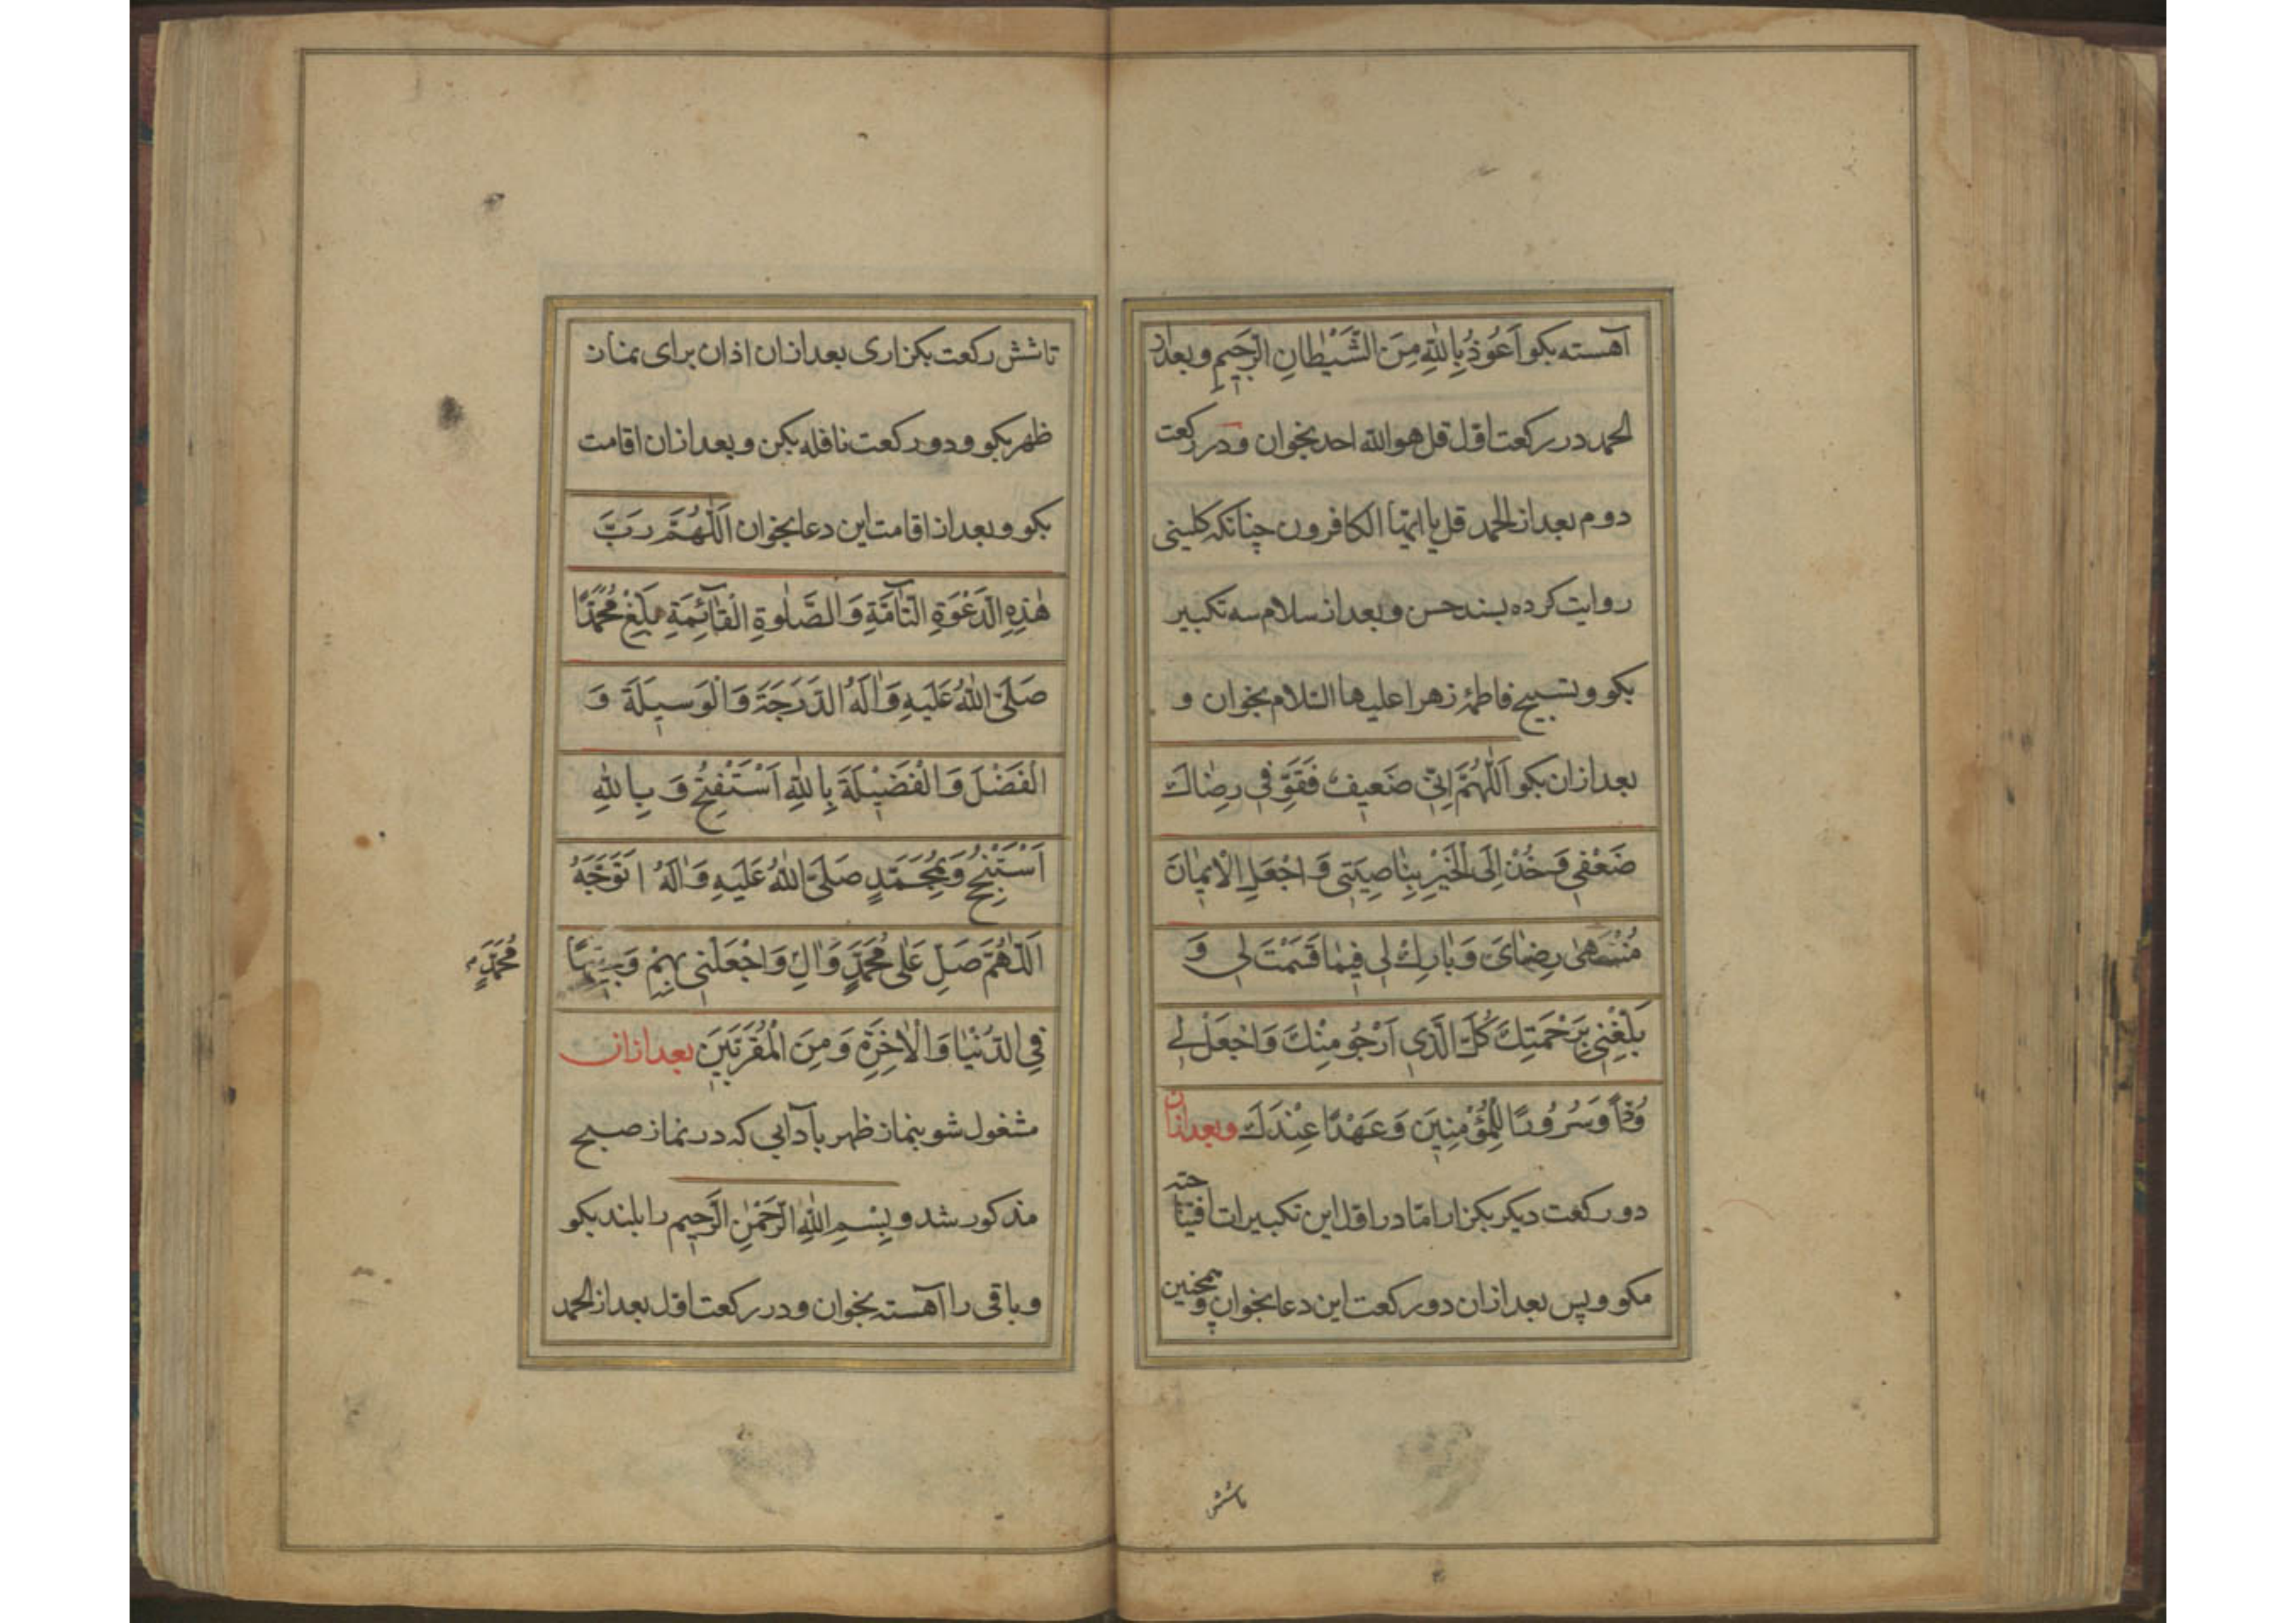 آهسته بکو اَعُوذُ بِاللّٰهِ مِنَ الشَّیْطٰانِ الرَّجیٖمِ و بعداز
الحمد در رکعت اوّل قل هو اللّه احد بخوان و در رکعت
دوم بعد از الحمد قل یا ایّها الکافرون چنانکه کلینی
روایت کرده بسند حسن و بعد از سلام سه تکبیر
بکو و تسبیح فاطمهٔ زهرا علیها السّلام بخوان و
بعد ازان بکو اَللّٰهُمَّ اِنّیٖ ضَعیٖفٌ فَقَوِّ فیٖ رِضٰاكَ
ضَعْفیٖ وَ خُذْ اِلَی الْخَیْرِ بِنٰاصِیَتیٖ وَ اجْعَلِ الْایٖمٰانَ
مُنْتَهیٰ رِضٰایَ وَ بٰارِكْ لیٖ فیٖمٰا قَسَمْتَ لیٖ وَ
بَلِّغْنیٖ بِرَحْمَتِكَ كُلَّ الَّذیٖ اَرْجُو مِنْكَ وَ اجْعَلْ لیٖ
وُدًّا وَ سُرُورًا لِلْمُؤْمِنیٖنَ وَ عَهْدًا عِنْدَكَ و بعد ازان
دو رکعت دیکر بکزار امّا در اوّل این تکبیرات افتتاحیّه
مکو و پس بعد ازان دو رکعت این دعا بخوان و همچنین
تاشش
تاشش رکعت بکزاری بعد ازان اذان برای نماز
ظهر بکو و دو رکعت نافله بکن و بعد ازان اقامت
بکو و بعد از اقامت این دعا بخوان اَللّٰهُمَّ رَبَّ
هٰذِهِ الدَّعْوَةِ التّٰامَّةِ وَ الصَّلٰوةِ الْقٰآئِمَةِ بَلِّغْ مُحَمَّدًا
صَلَّی اللّٰهُ عَلَیْهِ وَ اٰلِهُ الدَّرَجَةَ وَ الْوَسیٖلَةَ وَ
الْفَضْلَ وَ الْفَضیٖلَةَ بِاللّٰهِ اَسْتَفْتِحُ وَ بِاللّٰهِ
اَسْتَنْجِحُ وَ بِمُحَمَّدٍ صَلَّی اللّٰهُ عَلَیْهِ وَ اٰلِهُ اَتَوَجَّهُ
اَللّٰهُمَّ صَلِّ عَلٰی مُحَمَّدٍ وَ اٰلِ وَ اجْعَلْنیٖ بِهِمْ وَجیٖهًا
مُحَمَّدٍ
فِی الدُّنْیٰا وَ الْاٰخِرَةِ وَ مِنَ الْمُقَرَّبیٖنَ بعد ازان
مشغول شو بنماز ظهر بآدابی که در نماز صبح
مذکور شد و بِسْمِ اللّٰهِ الرَّحْمٰنِ الرَّحیٖمِ را بلند بکو
و باقی را آهسته بخوان و در رکعت اوّل بعد از الحمد